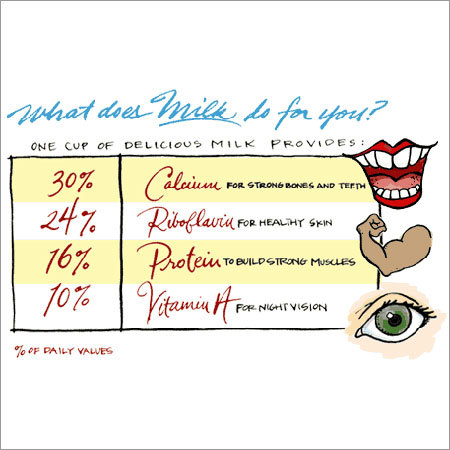 What does Milk do for you?
ONE CUP OF DELICIOUS MILK PROVIDES:
30% Calcium FOR STRONG BONES AND TEETH
24% Riboflavin FOR HEALTHY SKIN
16% Protein TO BUILD STRONG MUSCLES
10% Vitamin A FOR NIGHT VISION
% OF DAILY VALUES